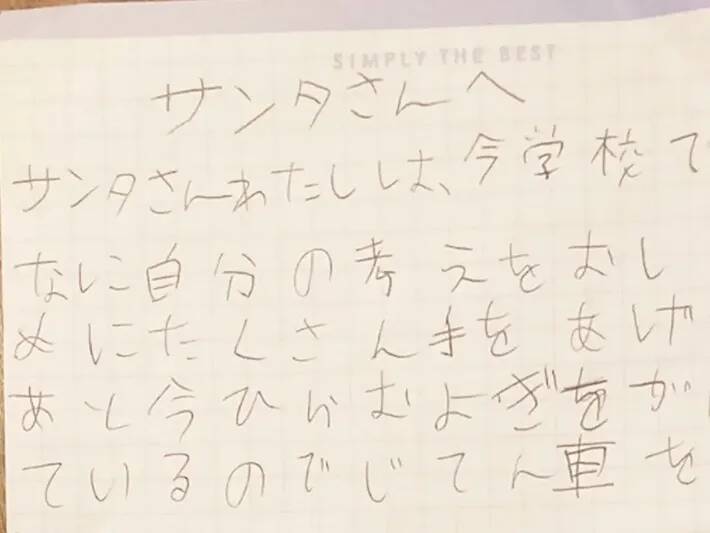 SIMPLY THE BEST
サンタさんへ
サンタさんわたしは、今学校で
なに自分の考えをおし
めにたくさん手をあげ
あと今ひらおよぎをが
ているのでじてん車を